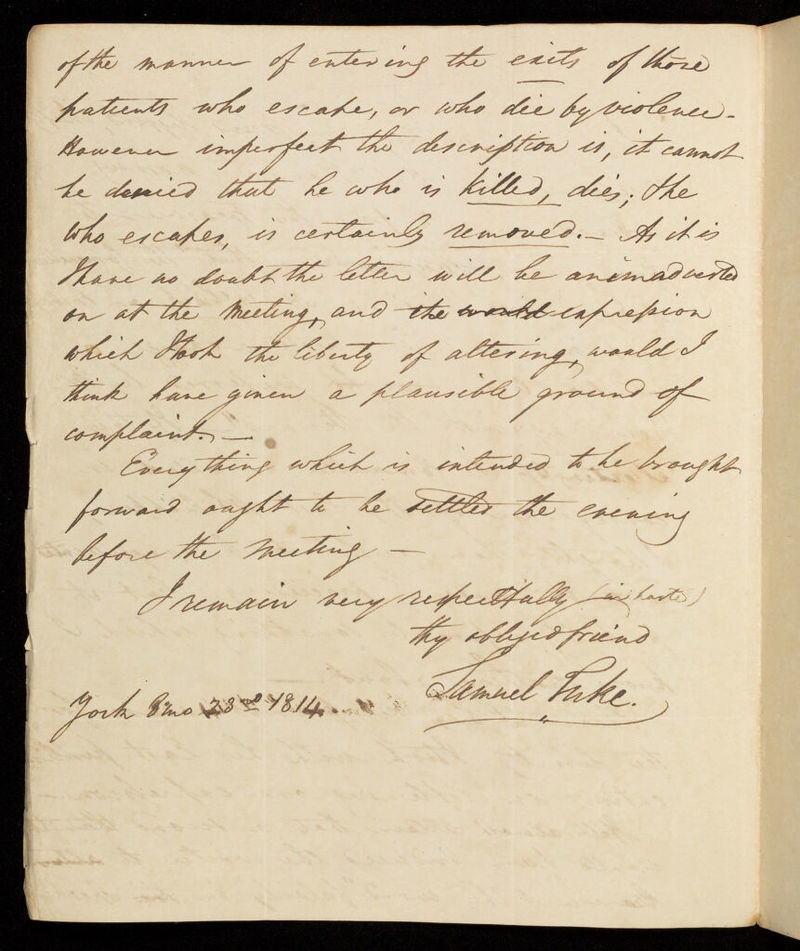 of the manner of entering the exits of those
patients who escape, or who die by violence -
However imperfect the description is, it cannot
be denied that he who is killed, dies; & he
who escapes, is certainly removed. - As it is
I have no doubt the letter will be animadverted
on at the Meeting, and the would expression
which I took the liberty of altering, would I
think have given a plausible ground of
complaint. -
Everything which is intended to be brought
forward ought to be settled the evening
before the Meeting -
I remain very respectfully (in haste)
thy obliged friend
Samuel Tuke.
York 8mo 23d 1814